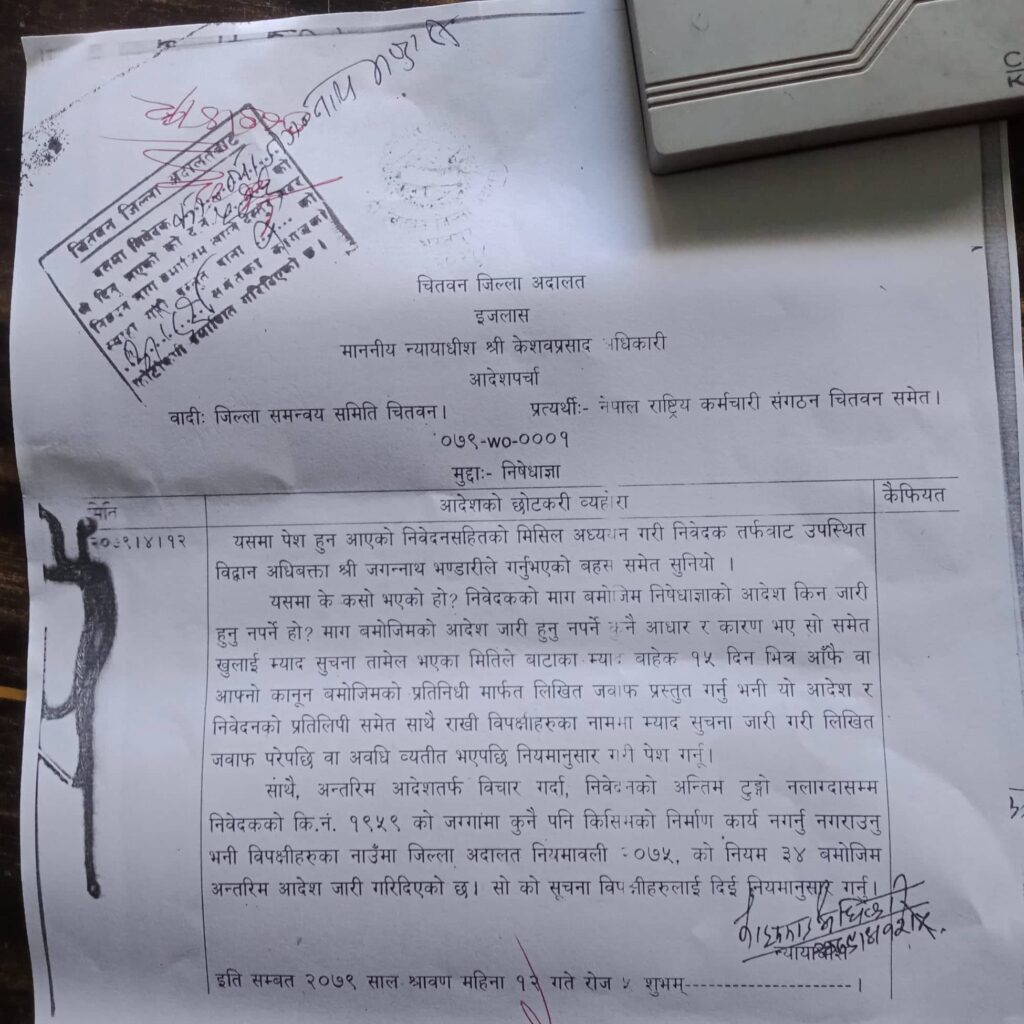 चितवन जिल्ला अदालतबाट
यसमा निवेदक
फोटोकपी प्रमाणित गरिदिएको छ ।
चितवन जिल्ला अदालत
इजलास
माननीय न्यायाधीश श्री केशवप्रसाद अधिकारी
आदेशपर्चा
वादीः जिल्ला समन्वय समिति चितवन। प्रत्यर्थीः- नेपाल राष्ट्रिय कर्मचारी संगठन चितवन समेत।
०७९-wo-०००१
मुद्दाः- निषेधाज्ञा
मिति आदेशको छोटकरी व्यहोरा कैफियत
२०७९।४।१२ यसमा पेश हुन आएको निवेदनसहितको मिसिल अध्ययन गरी निवेदक तर्फबाट उपस्थित
विद्वान अधिबक्ता श्री जगन्नाथ भण्डारीले गर्नुभएको बहस समेत सुनियो ।
यसमा के कसो भएको हो? निवेदकको माग बमोजिम निषेधाज्ञाको आदेश किन जारी
हुनु नपर्ने हो? माग बमोजिमको आदेश जारी हुनु नपर्ने कुनै आधार र कारण भए सो समेत
खुलाई म्याद सुचना तामेल भएका मितिले बाटाका म्याद बाहेक १५ दिन भित्र आँफै वा
आफ्नो कानून बमोजिमको प्रतिनिधी मार्फत लिखित जवाफ प्रस्तुत गर्नु भनी यो आदेश र
निवेदनको प्रतिलिपी समेत साथै राखी विपक्षीहरुका नाममा म्याद सुचना जारी गरी लिखित
जवाफ परेपछि वा अवधि व्यतीत भएपछि नियमानुसार गरी पेश गर्नू।
साथै, अन्तरिम आदेशतर्फ विचार गर्दा, निवेदनको अन्तिम टुङ्गो नलाग्दासम्म
निवेदकको कि.नं. १९५९ को जग्गामा कुनै पनि किसिमको निर्माण कार्य नगर्नु नगराउनु
भनी विपक्षीहरुका नाउँमा जिल्ला अदालत नियमावली २०७५, को नियम ३४ बमोजिम
अन्तरिम आदेश जारी गरिदिएको छ। सो को सूचना विपक्षीहरुलाई दिई नियमानुसार गर्नु।
न्यायाधीश
इति सम्बत २०७९ साल श्रावण महिना १२ गते रोज ५ शुभम्------------------।